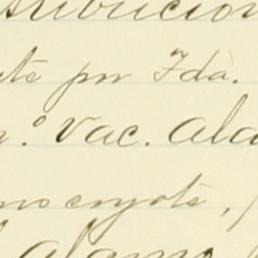 tribucion
te por Idà.
o. Vac. ala
mo coyote,
alamo